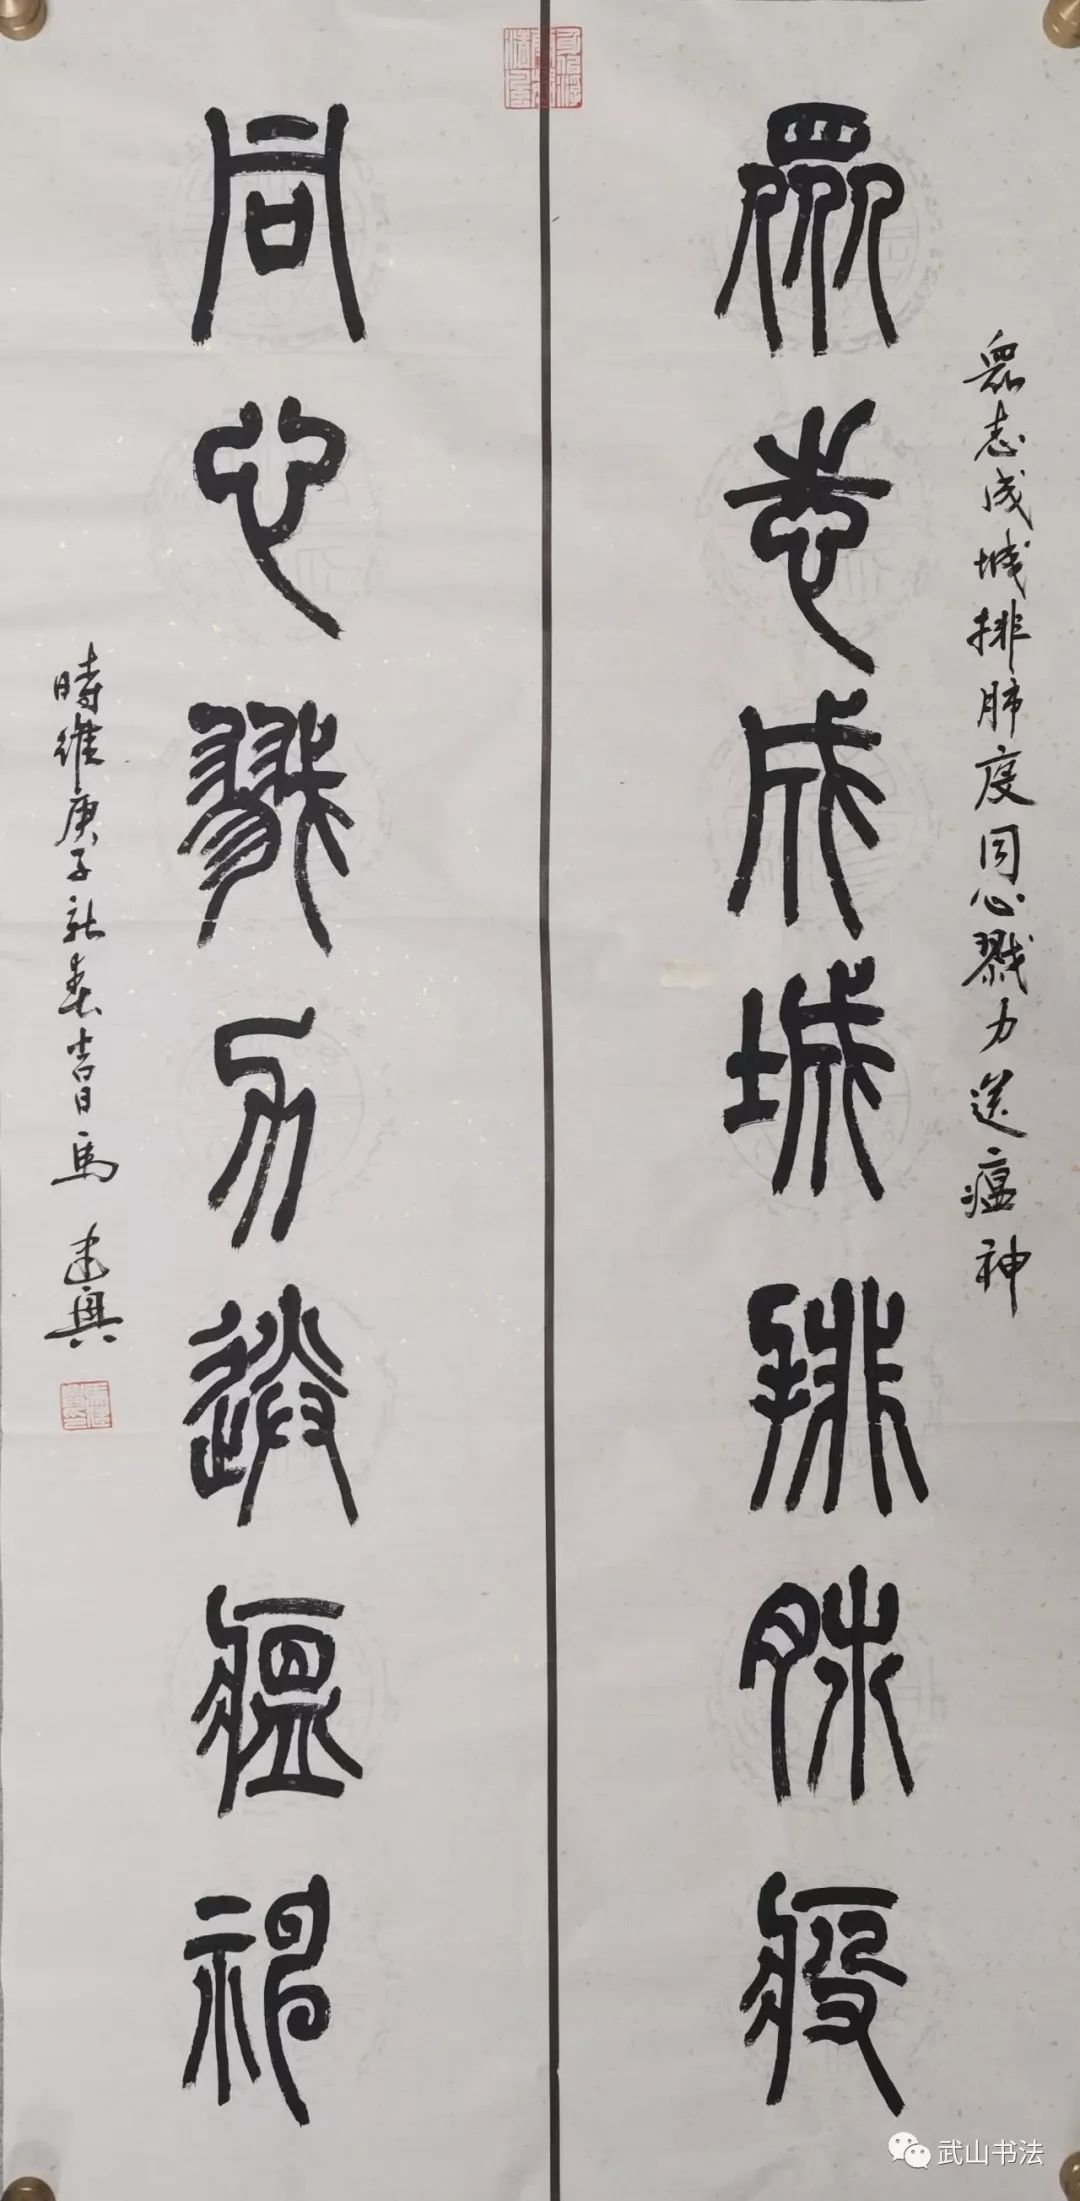 眾志成城排肺疫同心戮力送瘟神
眾志成城排肺疫
同心戮力送瘟神
時維庚子新春吉日馬建興
武山书法